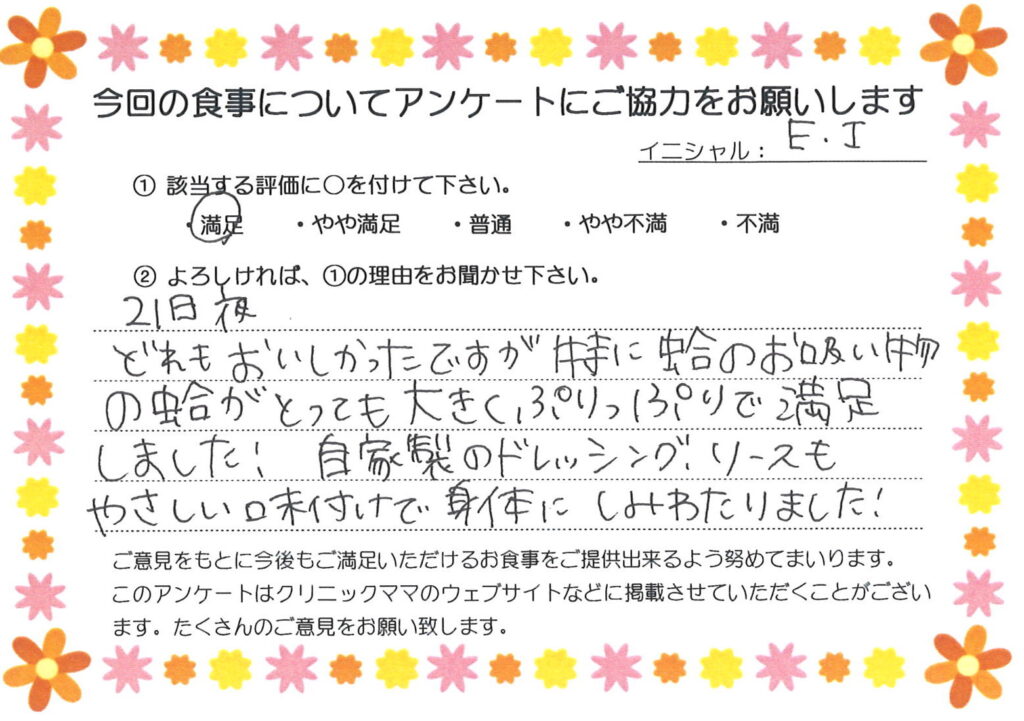 今回の食事についてアンケートにご協力をお願いします
イニシャル： E.I
① 該当する評価に〇を付けて下さい。
・満足 ・やや満足 ・普通 ・やや不満 ・不満
② よろしければ、①の理由をお聞かせ下さい。
21日 夜
どれもおいしかったですが 特に 蛤のお吸い物
の蛤がとっても大きく、ぷりっぷりで満足
しました！ 自家製のドレッシング、ソースも
やさしい味付けで 身体に しみわたりました！
ご意見をもとに今後もご満足いただけるお食事をご提供出来るよう努めてまいります。
このアンケートはクリニックママのウェブサイトなどに掲載させていただくことがござい
ます。たくさんのご意見をお願い致します。